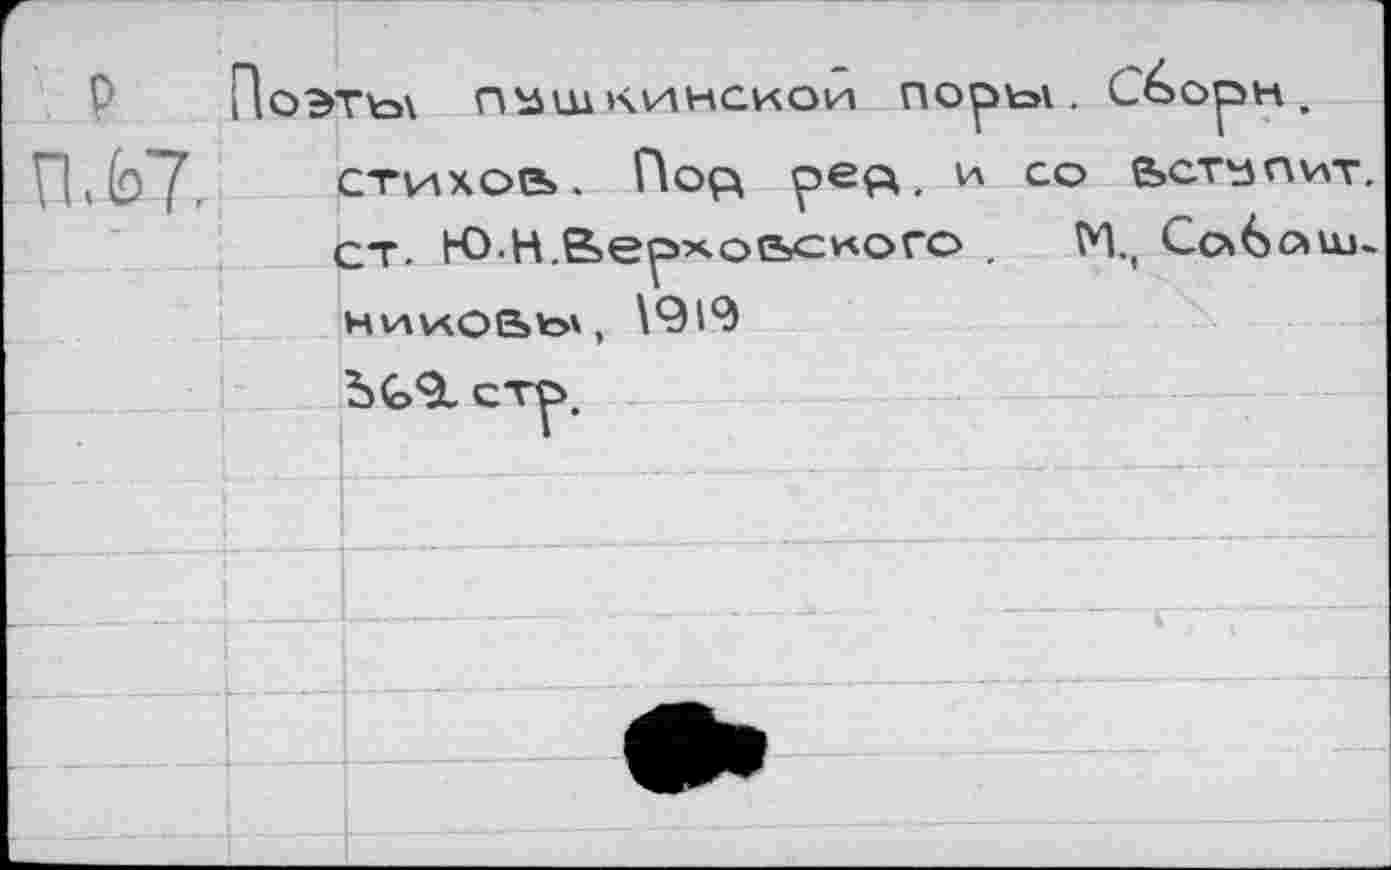 Р Поэты пушкинской поры. Сборн.
П.67. стихов. Под ред. и со вступит.
ст. Ю.Н.Верховского. М., Сабаш-
никовы, 1919
362 стр.